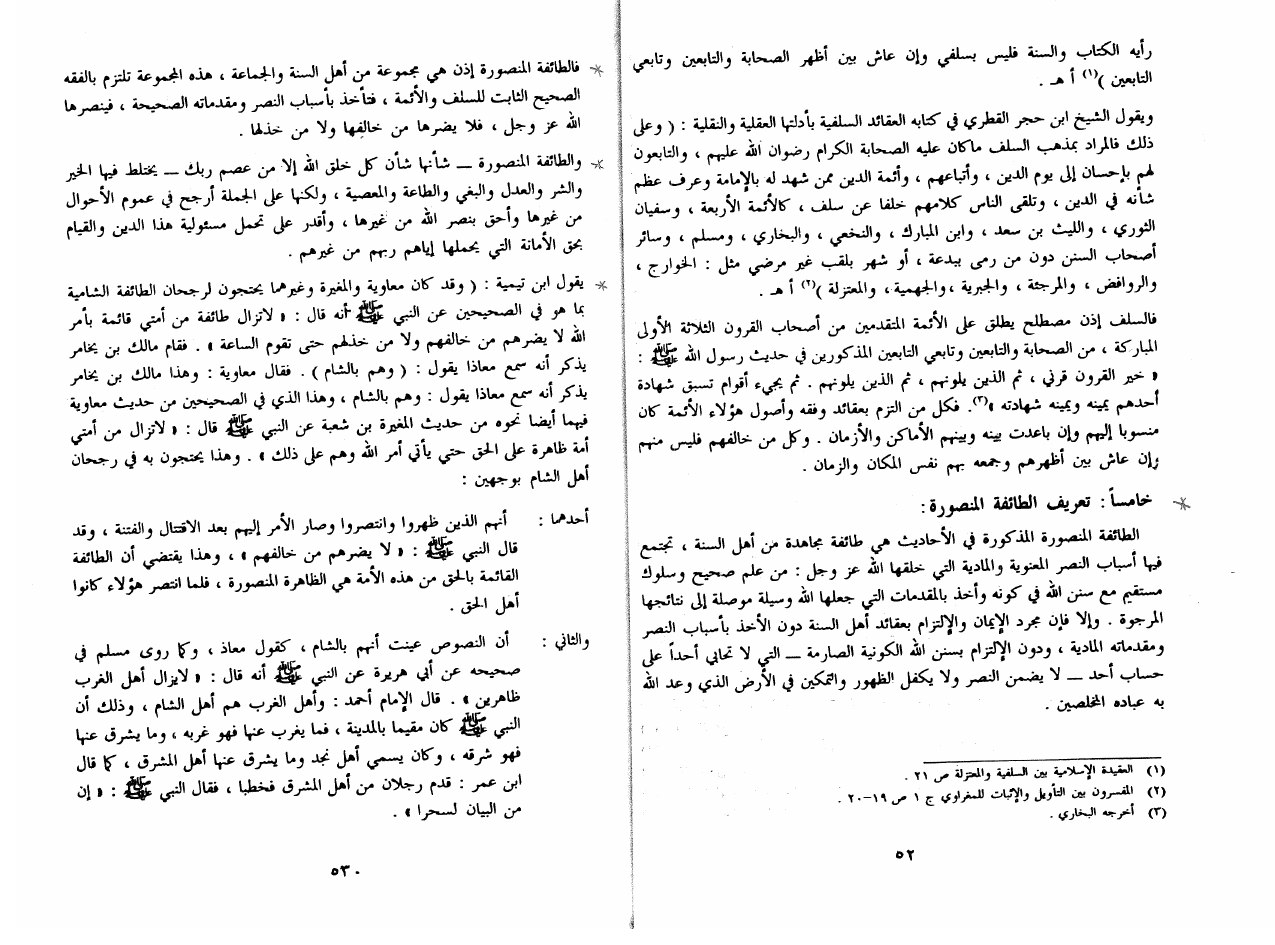 رأيه الكتاب والسنة فليس بسلفي وإن عاش بين أظهر الصحابة والتابعين وتابعي
التابعين )(١) أ هـ .
ويقول الشيخ ابن حجر القطري في كتابه العقائد السلفية بأدلتها العقلية والنقلية : ( وعلى
ذلك فالمراد بمذهب السلف ماكان عليه الصحابة الكرام رضوان الله عليهم ، والتابعون
لهم بإحسان إلى يوم الدين ، وأتباعهم ، وأئمة الدين ممن شهد له بالإمامة وعرف عظم
شأنه في الدين ، وتلقى الناس كلامهم خلفا عن سلف ، كالأئمة الأربعة ، وسفيان
الثوري ، والليث بن سعد ، وابن المبارك ، والنخعي ، والبخاري ، ومسلم ، وسائر
أصحاب السنن دون من رمى ببدعة ، أو شهر بلقب غير مرضي مثل : الخوارج ،
والروافض ، والمرجئة ، والجبرية ، والجهمية ، والمعتزلة )(٢) أ هـ .
فالسلف إذن مصطلح يطلق على الأئمة المتقدمين من أصحاب القرون الثلاثة الأولى
المباركة ، من الصحابة والتابعين وتابعي التابعين المذكورين في حديث رسول الله ﷺ :
« خير القرون قرني ، ثم الذين يلونهم ، ثم الذين يلونهم . ثم يجيء أقوام تسبق شهادة
أحدهم يمينه ويمينه شهادته »(٣). فكل من التزم بعقائد وفقه وأصول هؤلاء الأئمة كان
منسوبا إليهم وإن باعدت بينه وبينهم الأماكن والأزمان . وكل من خالفهم فليس منهم
وإن عاش بين أظهرهم وجمعه بهم نفس المكان والزمان .
خامساً : تعريف الطائفة المنصورة :
الطائفة المنصورة المذكورة في الأحاديث هي طائفة مجاهدة من أهل السنة ، تجتمع
فيها أسباب النصر المعنوية والمادية التي خلقها الله عز وجل : من علم صحيح وسلوك
مستقيم مع سنن الله في كونه وأخذ بالمقدمات التي جعلها الله وسيلة موصلة إلى نتائجها
المرجوة . وإلا فإن مجرد الإيمان والإلتزام بعقائد أهل السنة دون الأخذ بأسباب النصر
ومقدماته المادية ، ودون الإلتزام بسنن الله الكونية الصارمة ــ التي لا تحابي أحداً على
حساب أحد ــ لا يضمن النصر ولا يكفل الظهور والتمكين في الأرض الذي وعد الله
به عباده المخلصين .
(١) العقيدة الإسلامية بين السلفية والمعتزلة ص ٢١ .
(٢) المفسرون بين التأويل والإثبات للمغراوي ج ١ ص ١٩-٢٠ .
(٣) أخرجه البخاري .
٥٢
فالطائفة المنصورة إذن هي مجموعة من أهل السنة والجماعة ، هذه المجموعة تلتزم بالفقه
الصحيح الثابت للسلف والأئمة ، فتأخذ بأسباب النصر ومقدماته الصحيحة ، فينصرها
الله عز وجل ، فلا يضرها من خالفها ولا من خذلها .
والطائفة المنصورة ــ شأنها شأن كل خلق الله إلا من عصم ربك ــ يختلط فيها الخير
والشر والعدل والبغي والطاعة والمعصية ، ولكنها على الجملة أرجح في عموم الأحوال
من غيرها وأحق بنصر الله من غيرها ، وأقدر على تحمل مسئولية هذا الدين والقيام
بحق الأمانة التي يحملها إياهم ربهم من غيرهم .
يقول ابن تيمية : ( وقد كان معاوية والمغيرة وغيرهما يحتجون لرجحان الطائفة الشامية
بما هو في الصحيحين عن النبي ﷺ أنه قال : « لاتزال طائفة من أمتي قائمة بأمر
الله لا يضرهم من خالفهم ولا من خذلهم حتى تقوم الساعة » . فقام مالك بن يخامر
يذكر أنه سمع معاذا يقول : ( وهم بالشام ) . فقال معاوية : وهذا مالك بن يخامر
يذكر أنه سمع معاذا يقول : وهم بالشام ، وهذا الذي في الصحيحين من حديث معاوية
فيهما أيضا نحوه من حديث المغيرة بن شعبة عن النبي ﷺ قال : « لاتزال من أمتي
أمة ظاهرة على الحق حتي يأتي أمر الله وهم على ذلك » . وهذا يحتجون به في رجحان
أهل الشام بوجهين :
أحدهما : أنهم الذين ظهروا وانتصروا وصار الأمر إليهم بعد الاقتتال والفتنة ، وقد
قال النبي ﷺ : « لا يضرهم من خالفهم » ، وهذا يقتضي أن الطائفة
القائمة بالحق من هذه الأمة هي الظاهرة المنصورة ، فلما انتصر هؤلاء كانوا
أهل الحق .
والثاني : أن النصوص عينت أنهم بالشام ، كقول معاذ ، وكما روى مسلم في
صحيحه عن أبي هريرة عن النبي ﷺ أنه قال : « لايزال أهل الغرب
ظاهرين » . قال الإمام أحمد : وأهل الغرب هم أهل الشام ، وذلك أن
النبي ﷺ كان مقيما بالمدينة ، فما يغرب عنها فهو غربه ، وما يشرق عنها
فهو شرقه ، وكان يسمي أهل نجد وما يشرق عنها أهل المشرق ، كما قال
ابن عمر : قدم رجلان من أهل المشرق فخطبا ، فقال النبي ﷺ : « إن
من البيان لسحرا » .
٥٣٠